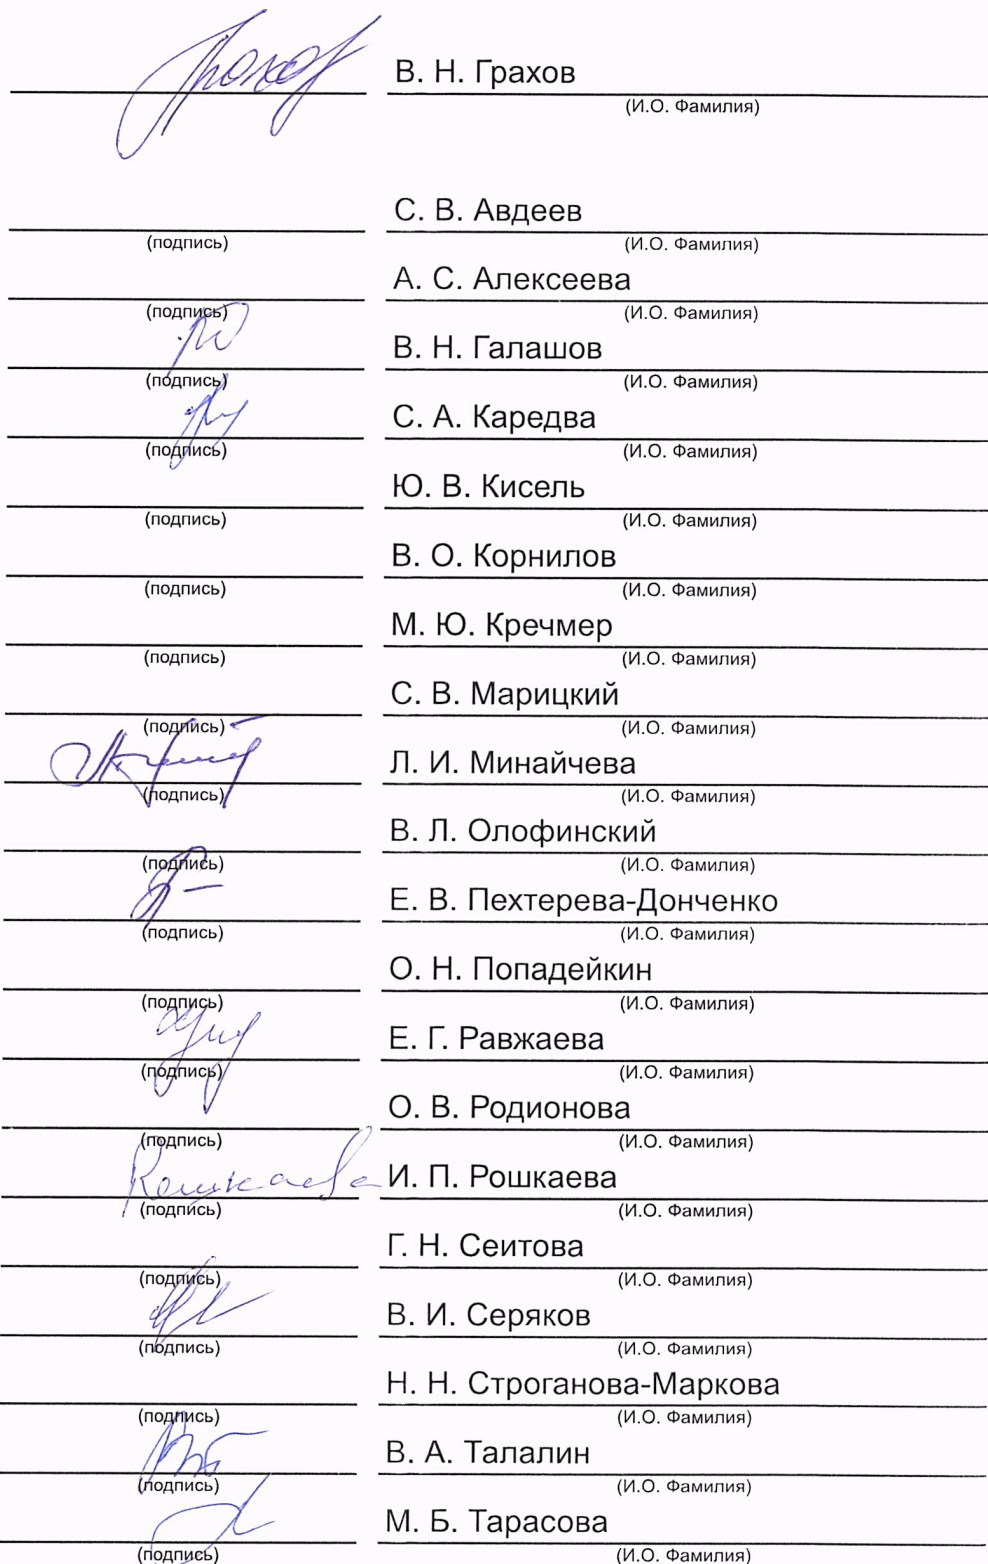 В. Н. Грахов
(И.О. Фамилия)
С. В. Авдеев
(подпись) (И.О. Фамилия)
А. С. Алексеева
(подпись) (И.О. Фамилия)
В. Н. Галашов
(подпись) (И.О. Фамилия)
С. А. Каредва
(подпись) (И.О. Фамилия)
Ю. В. Кисель
(подпись) (И.О. Фамилия)
В. О. Корнилов
(подпись) (И.О. Фамилия)
М. Ю. Кречмер
(подпись) (И.О. Фамилия)
С. В. Марицкий
(подпись) (И.О. Фамилия)
Л. И. Минайчева
(подпись) (И.О. Фамилия)
В. Л. Олофинский
(подпись) (И.О. Фамилия)
Е. В. Пехтерева-Донченко
(подпись) (И.О. Фамилия)
О. Н. Попадейкин
(подпись) (И.О. Фамилия)
Е. Г. Равжаева
(подпись) (И.О. Фамилия)
О. В. Родионова
(подпись) (И.О. Фамилия)
Рошкаева И. П. Рошкаева
(подпись) (И.О. Фамилия)
Г. Н. Сеитова
(подпись) (И.О. Фамилия)
В. И. Серяков
(подпись) (И.О. Фамилия)
Н. Н. Строганова-Маркова
(подпись) (И.О. Фамилия)
В. А. Талалин
(подпись) (И.О. Фамилия)
М. Б. Тарасова
(подпись) (И.О. Фамилия)